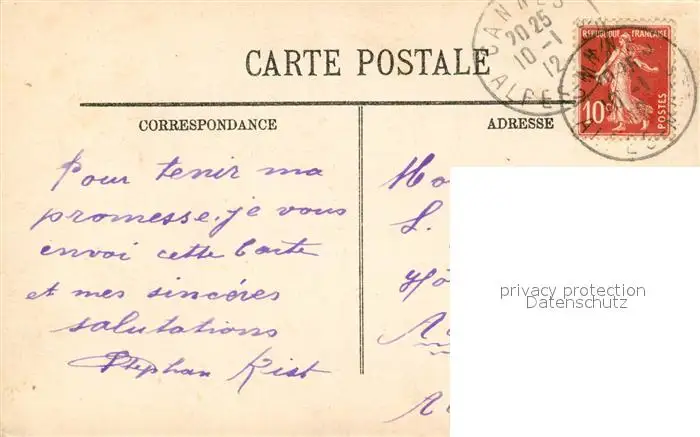 CARTE POSTALE
CANNES
20 25
10 - 1
12
ALPES
REPUBLIQUE FRANÇAISE
10c
POSTES
CORRESPONDANCE
ADRESSE
Pour tenir ma
promesse. je vous
envoi cette Carte
et mes sincéres
salutations
Stephan Kist
L.
privacy protection
Datenschutz